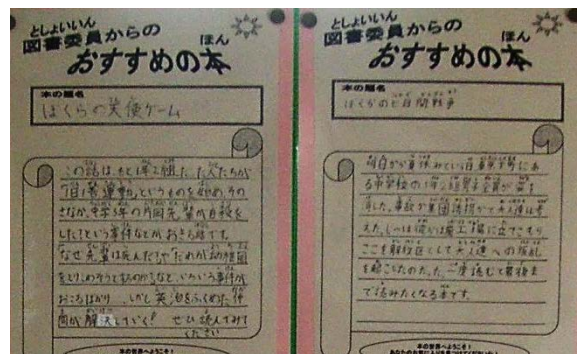 としょいいん
図書委員からの
ほん
おすすめの本
本の題名
ぼくらの天使ゲーム
この話は、もと1年2組だった人たちが
「1日1善運動」というものを始め、その
さなか、中学3年の片岡先輩が自殺を
した?という事件などが、おきる話です。
なぜ先輩は死んだ?や だれが幼稚園
をとりこわそうとするのか?など、いろいろ事件が
おこるばかり しかし英治をふくめた仲
間が解決していく! ぜひ読んでみて
ください
本の世界へようこそ!
としょいいん
図書委員からの
ほん
おすすめの本
本の題名
ぼくらの七日間戦争
明日から夏休みという日 東京下町にあ
る中学校の1年2組男子全員が姿を
消した。事故か集団誘拐かと大人達は考
えた。しかし彼らは廃工場に立てこもり
ここを解放区として大人達への叛乱
を起こしたのだった。一度読むと最後ま
で読みたくなる本です。
本の世界へようこそ!